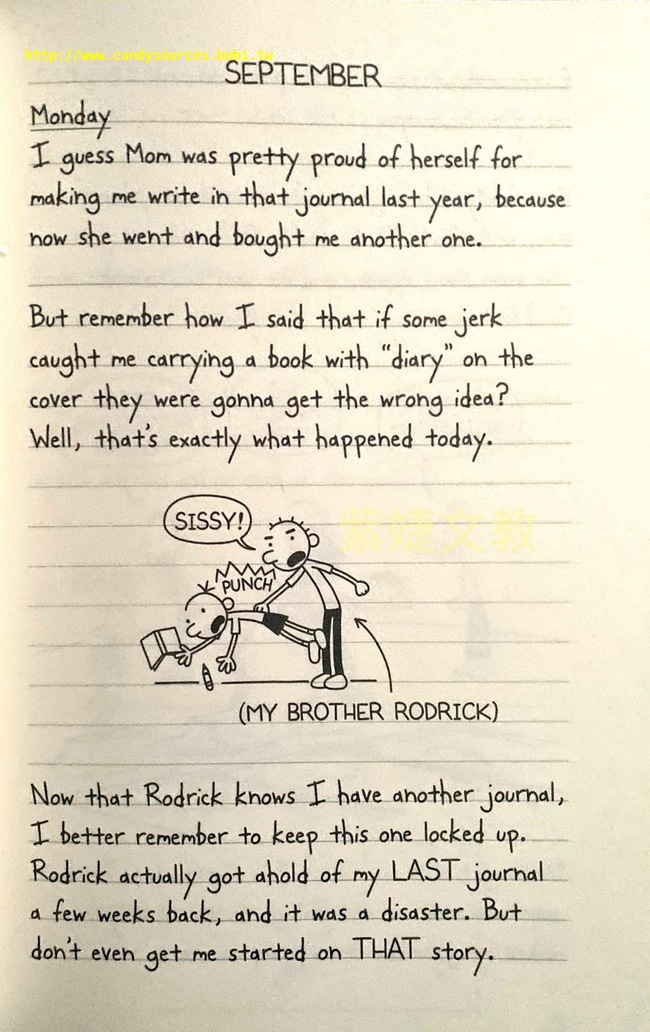 http://www.candysources.bobi.tw
SEPTEMBER
Monday
I guess Mom was pretty proud of herself for
making me write in that journal last year, because
now she went and bought me another one.
But remember how I said that if some jerk
caught me carrying a book with “diary” on the
cover they were gonna get the wrong idea?
Well, that's exactly what happened today.
SISSY!
紫婕文教
PUNCH
(MY BROTHER RODRICK)
Now that Rodrick knows I have another journal,
I better remember to keep this one locked up.
Rodrick actually got ahold of my LAST journal
a few weeks back, and it was a disaster. But
don't even get me started on THAT story.